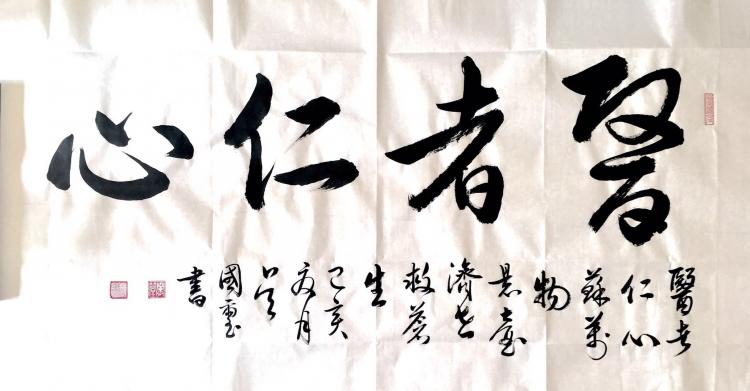 醫者仁心
醫者
仁心
蘇萬
物
悬壺
濟世
救蒼
生
己亥
夏月
國
書